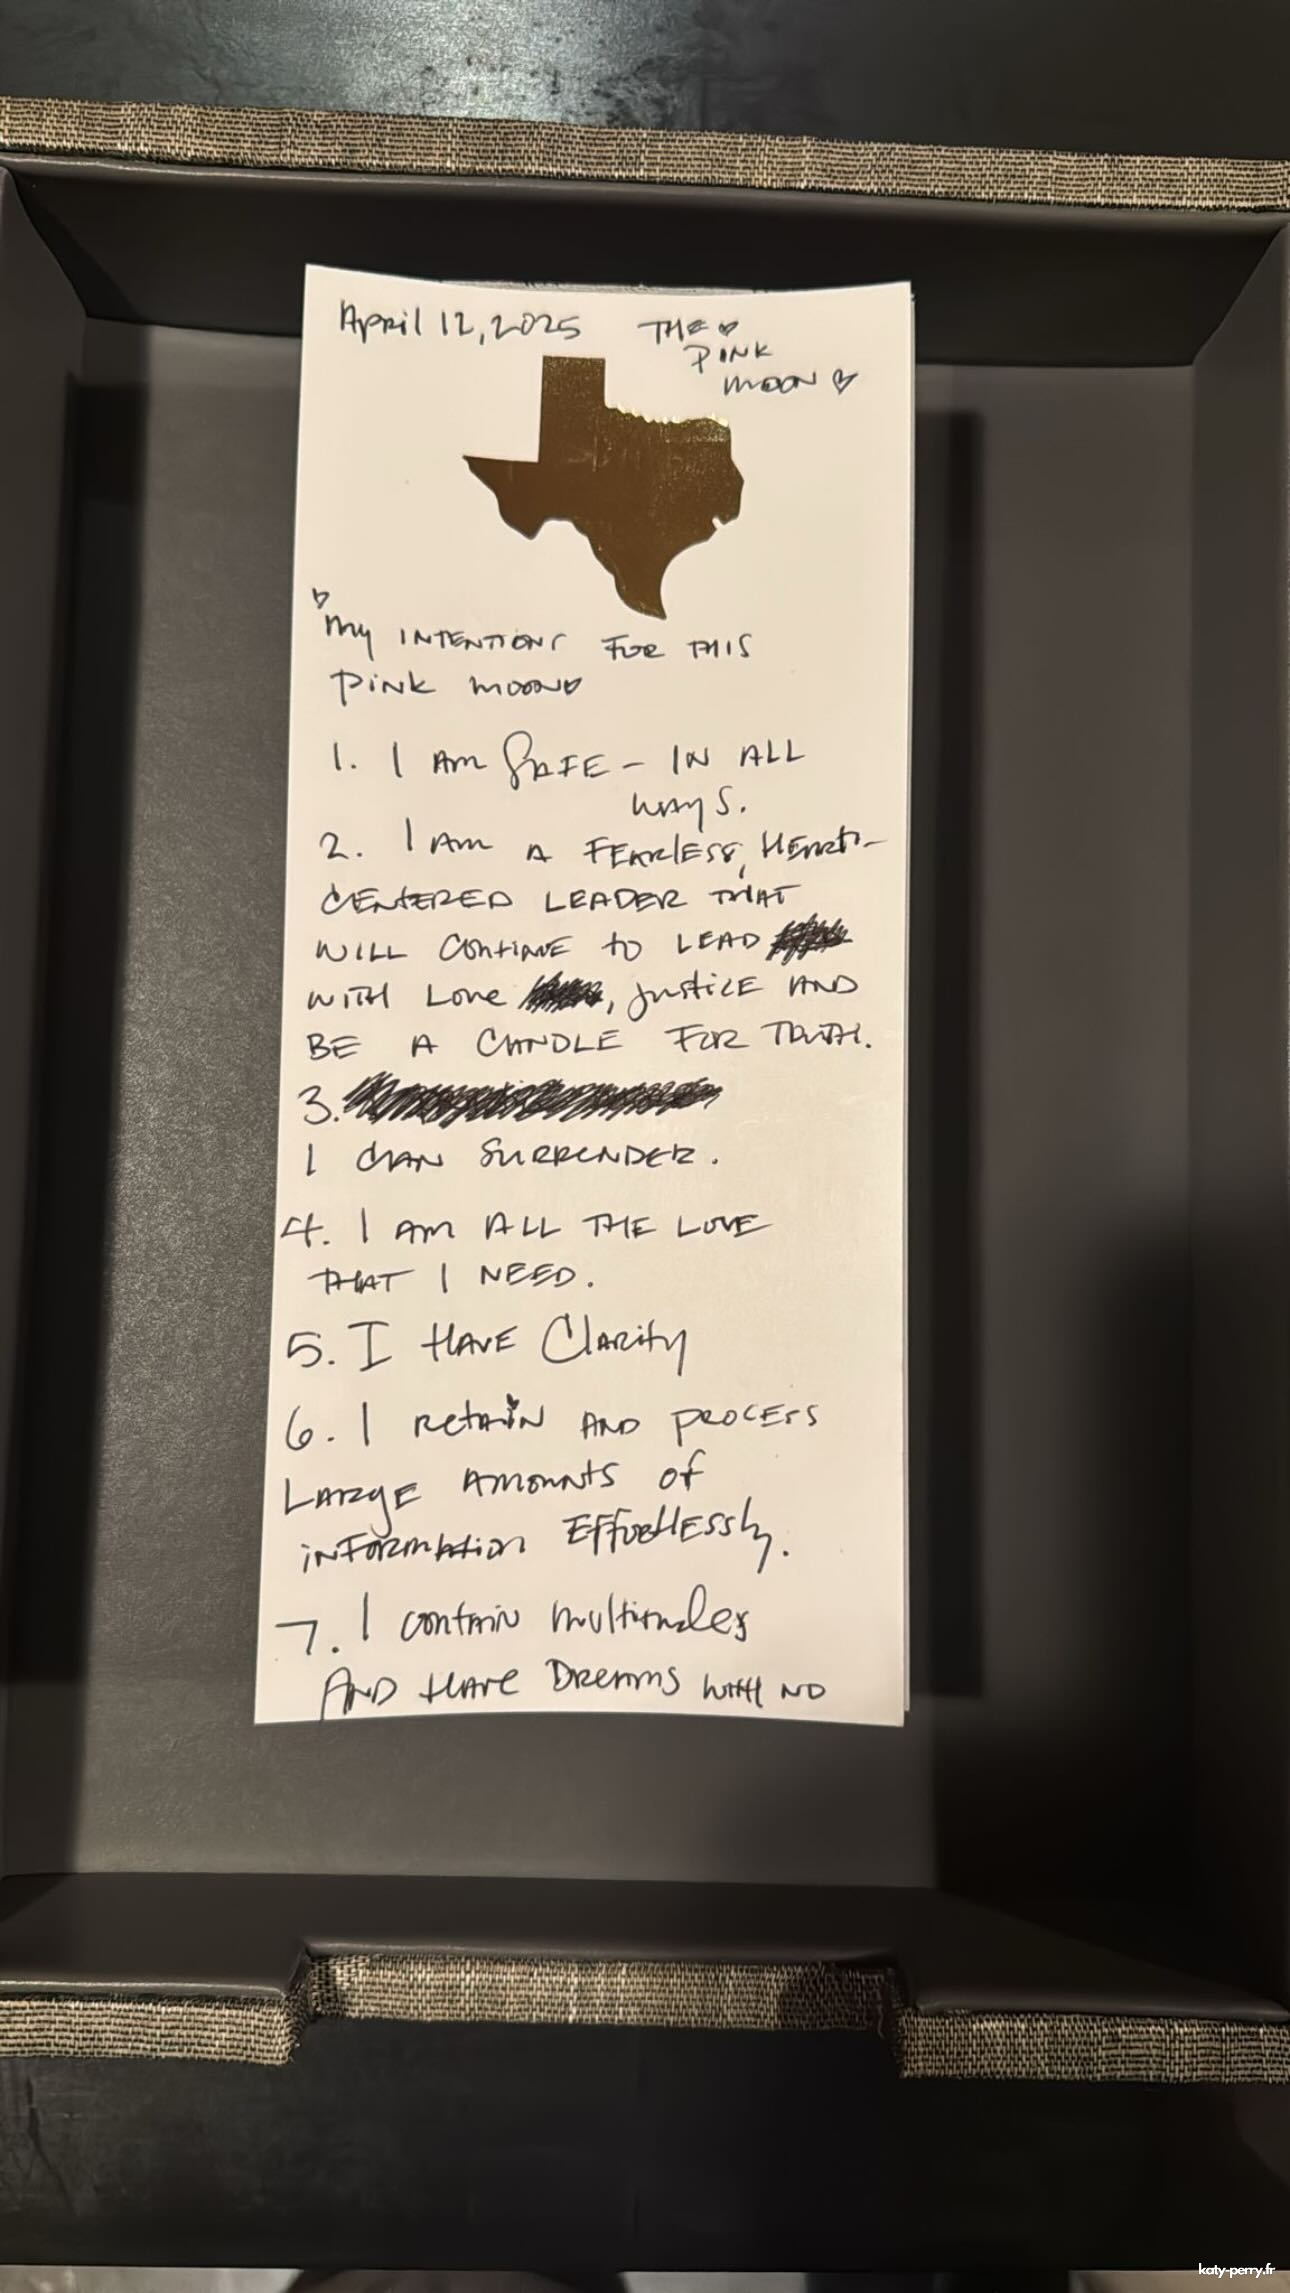 April 12, 2025 THE
PINK
MOON
My INTENTIONS FOR THIS
PINK MOON
1. I AM SAFE - IN ALL
WAYS.
2. I AM A FEARLESS, HEART-
CENTERED LEADER THAT
WILL CONTINUE TO LEAD
WITH LOVE, JUSTICE AND
BE A CANDLE FOR TRUTH.
3.
I CAN SURRENDER.
4. I AM ALL THE LOVE
THAT I NEED.
5. I HAVE Clarity
6. I RETAIN AND PROCESS
LARGE AMOUNTS OF
INFORMATION EFFORTLESSLY.
7. I contain multitudes
AND HAVE DREAMS WITH NO
katy-perry.fr